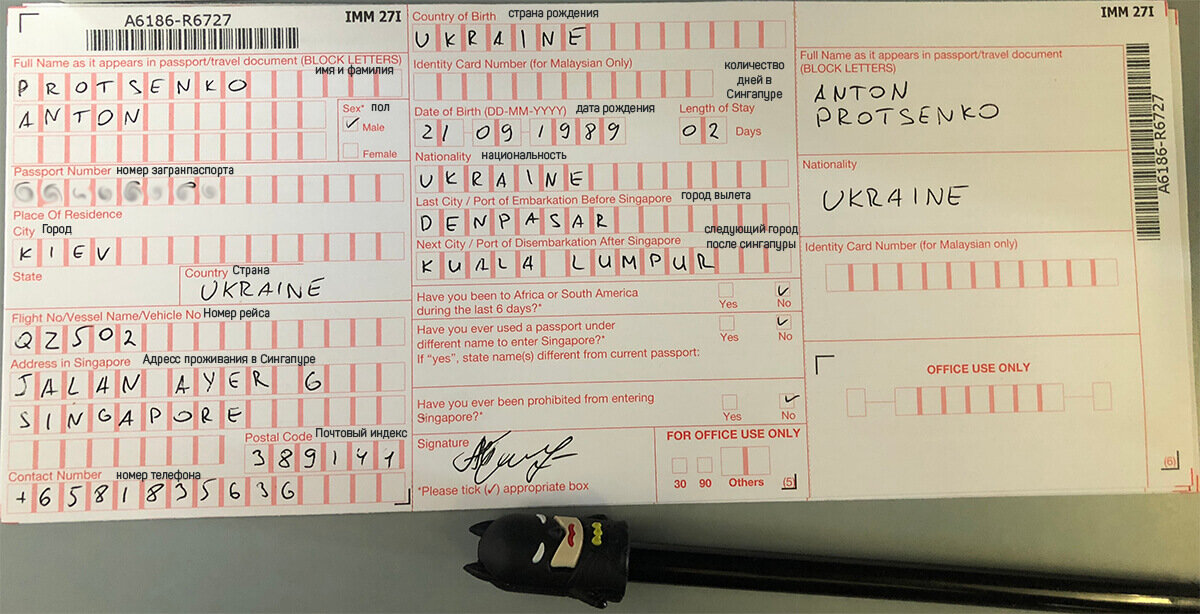 A6186-R6727
IMM 27I
Full Name as it appears in passport/travel document (BLOCK LETTERS)
имя и фамилия
PROTSENKO
ANTON
Sex* пол
✓ Male
Female
Passport Number номер загранпаспорта
Place Of Residence
City Город
KIEV
State
Country Страна
UKRAINE
Flight No/Vessel Name/Vehicle No Номер рейса
QZ502
Address in Singapore Адресс проживания в Сингапуре
JALAN AYER 6
SINGAPORE
Postal Code Почтовый индекс
389141
Contact Number номер телефона
+6581835636
Country of Birth страна рождения
UKRAINE
Identity Card Number (for Malaysian Only)
количество
дней в
Сингапуре
Date of Birth (DD-MM-YYYY) дата рождения
Length of Stay
21-09-1989
02 Days
Nationality национальность
UKRAINE
Last City / Port of Embarkation Before Singapore город вылета
DENPASAR
Next City / Port of Disembarkation After Singapore
следующий город
после сингапуры
KUALA LUMPUR
Have you been to Africa or South America
during the last 6 days?*
Yes
✓ No
Have you ever used a passport under
different name to enter Singapore?*
If "yes", state name(s) different from current passport:
Yes
✓ No
Have you ever been prohibited from entering
Singapore?*
Yes
✓ No
Signature
*Please tick (✓) appropriate box
FOR OFFICE USE ONLY
30 90 Others
(5)
IMM 27I
Full Name as it appears in passport/travel document
(BLOCK LETTERS)
ANTON
PROTSENKO
Nationality
UKRAINE
Identity Card Number (for Malaysian only)
OFFICE USE ONLY
(6)
A6186-R6727